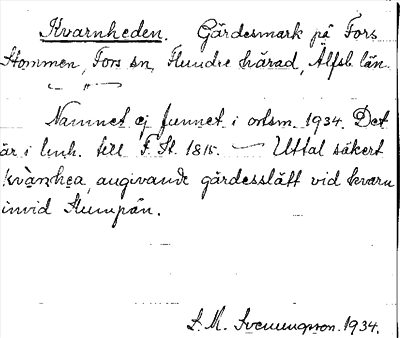 Kvarnheden. Gärdesmark på Fors
Stommen, Fors sn, Flundre härad, Älfsb. län.
— " —
Namnet ej funnet i ortsm. 1934. Det
är i enh. till F. St. 1815. — Uttal säkert
kvànhea, angivande gärdesslätt vid kvarn
invid Slumpån.
S. M. Svenungsson. 1934.